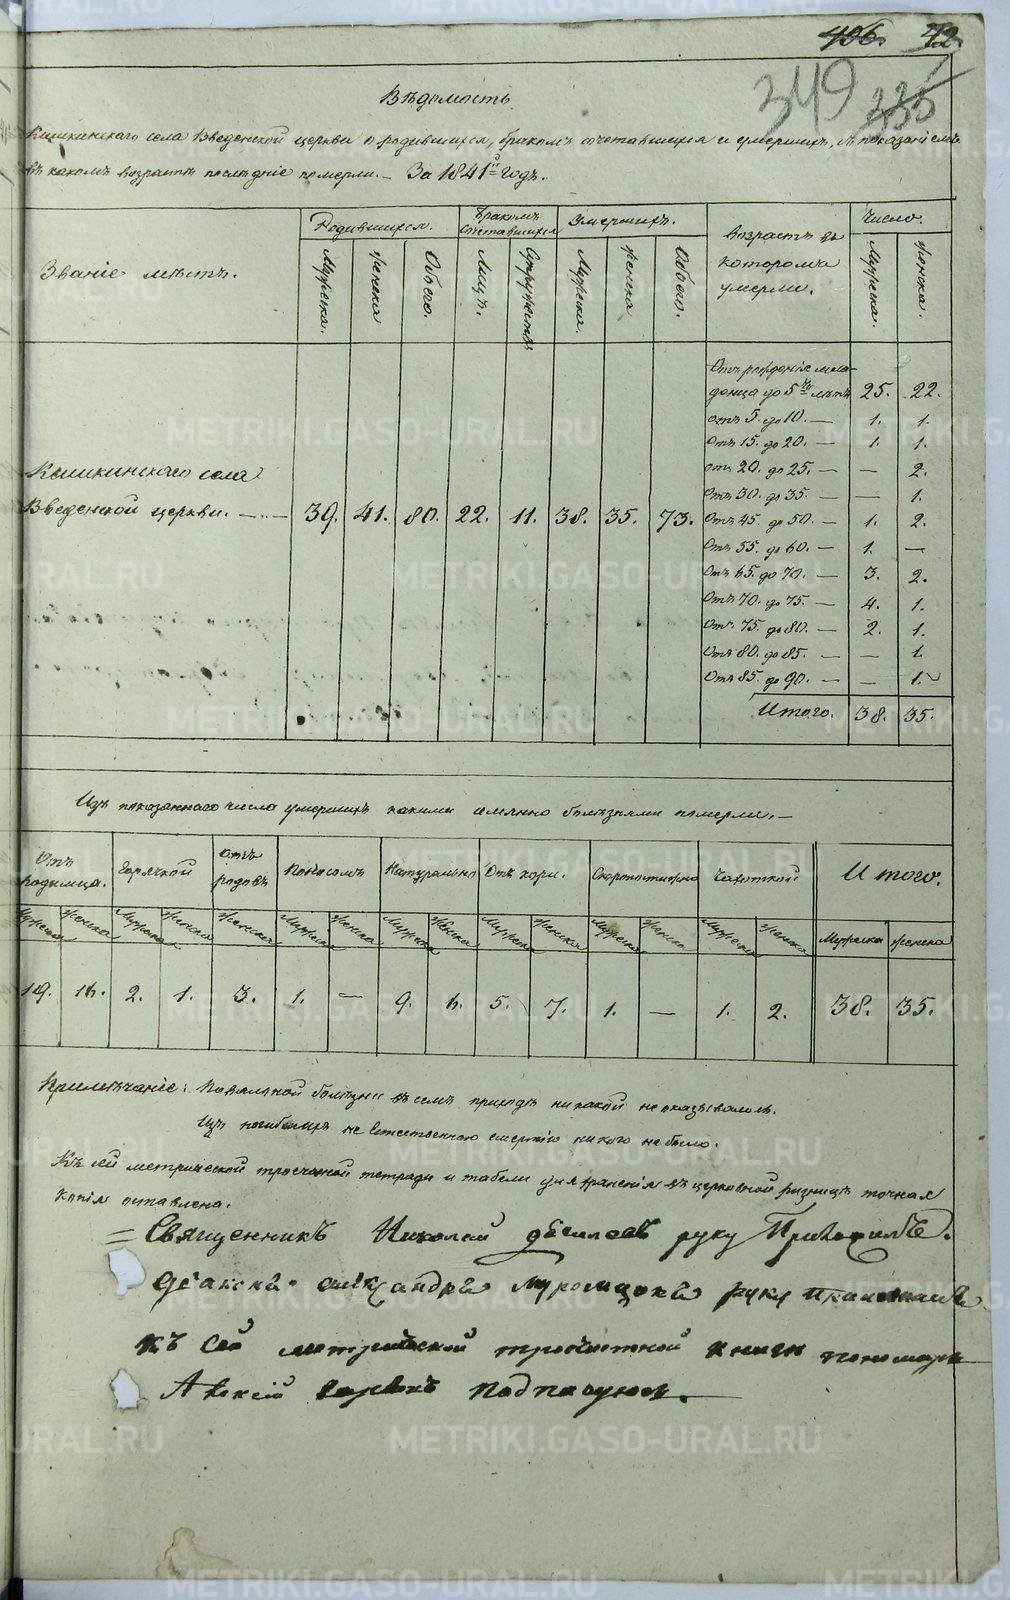 406. 42
349 335
Вѣдомость
Кишкинскаго села Введенской церкви о родившихся, бракомъ сочетавшихся и умершихъ, съ показаніемъ
въ какомъ возрастѣ послѣдніе померли. – За 1841й годъ.
Званіе мѣстъ.
Родившихся.
Бракомъ сочетавшихся
Умершихъ.
Возрастъ въ
которомъ
умерли.
Число.
Мужеска. Женска Обоего. Лицъ. Супружествъ Мужеска. Женска Обоего. Мужеска. Женска.
Отъ рожденія мла-
денца до 5ти лѣтъ 25. 22.
отъ 5. до 10. – 1. 1.
Отъ 15. до 20. – 1. 1.
отъ 20. до 25. – – 2.
Отъ 30. до 35. – – 1.
Кишкинскаго села
Введенской церкви. 39. 41. 80. 22. 11. 38. 35. 73. Отъ 45. до 50. – 1. 2.
Отъ 55. до 60. – 1. –
Отъ 65. до 70. – 3. 2.
Отъ 70. до 75. – 4. 1.
Отъ 75. до 80. – 2. 1.
Отъ 80. до 85. – – 1.
Отъ 85. до 90. – – 1.
Итого. 38. 35.
Изъ показаннаго числа умершихъ какими именно болѣзнями померли. –
Отъ родимца. Горячкой отъ родовъ Поносомъ Натурально Отъ кори. Скоропостижно Чахоткой Итого.
Мужеска Женска Мужеска Женска Женска Мужеска Женска Мужеска Женска Мужеска Женска Мужеска Женска Мужеска Женска Мужеска Женска
19. 16. 2. 1. 3. 1. – 9. 6. 5. 7. 1. – 1. 2. 38. 35.
Примѣчаніе: Повальной болѣзни въ семъ приходѣ никакой не оказывалось.
Изъ погибшихъ не Естественною смертію никого не было.
Къ сей метрической троечастной тетради и табели для храненія въ церковной ризницѣ точная
копія оставлена.
Священникъ Николай руку Приложилъ.
Діаконъ Александръ Муромцовъ руку приложилъ
Къ Сей метрической троечастной книги пономарь
Подписуюсь.
METRIKI.GASO-URAL.RU